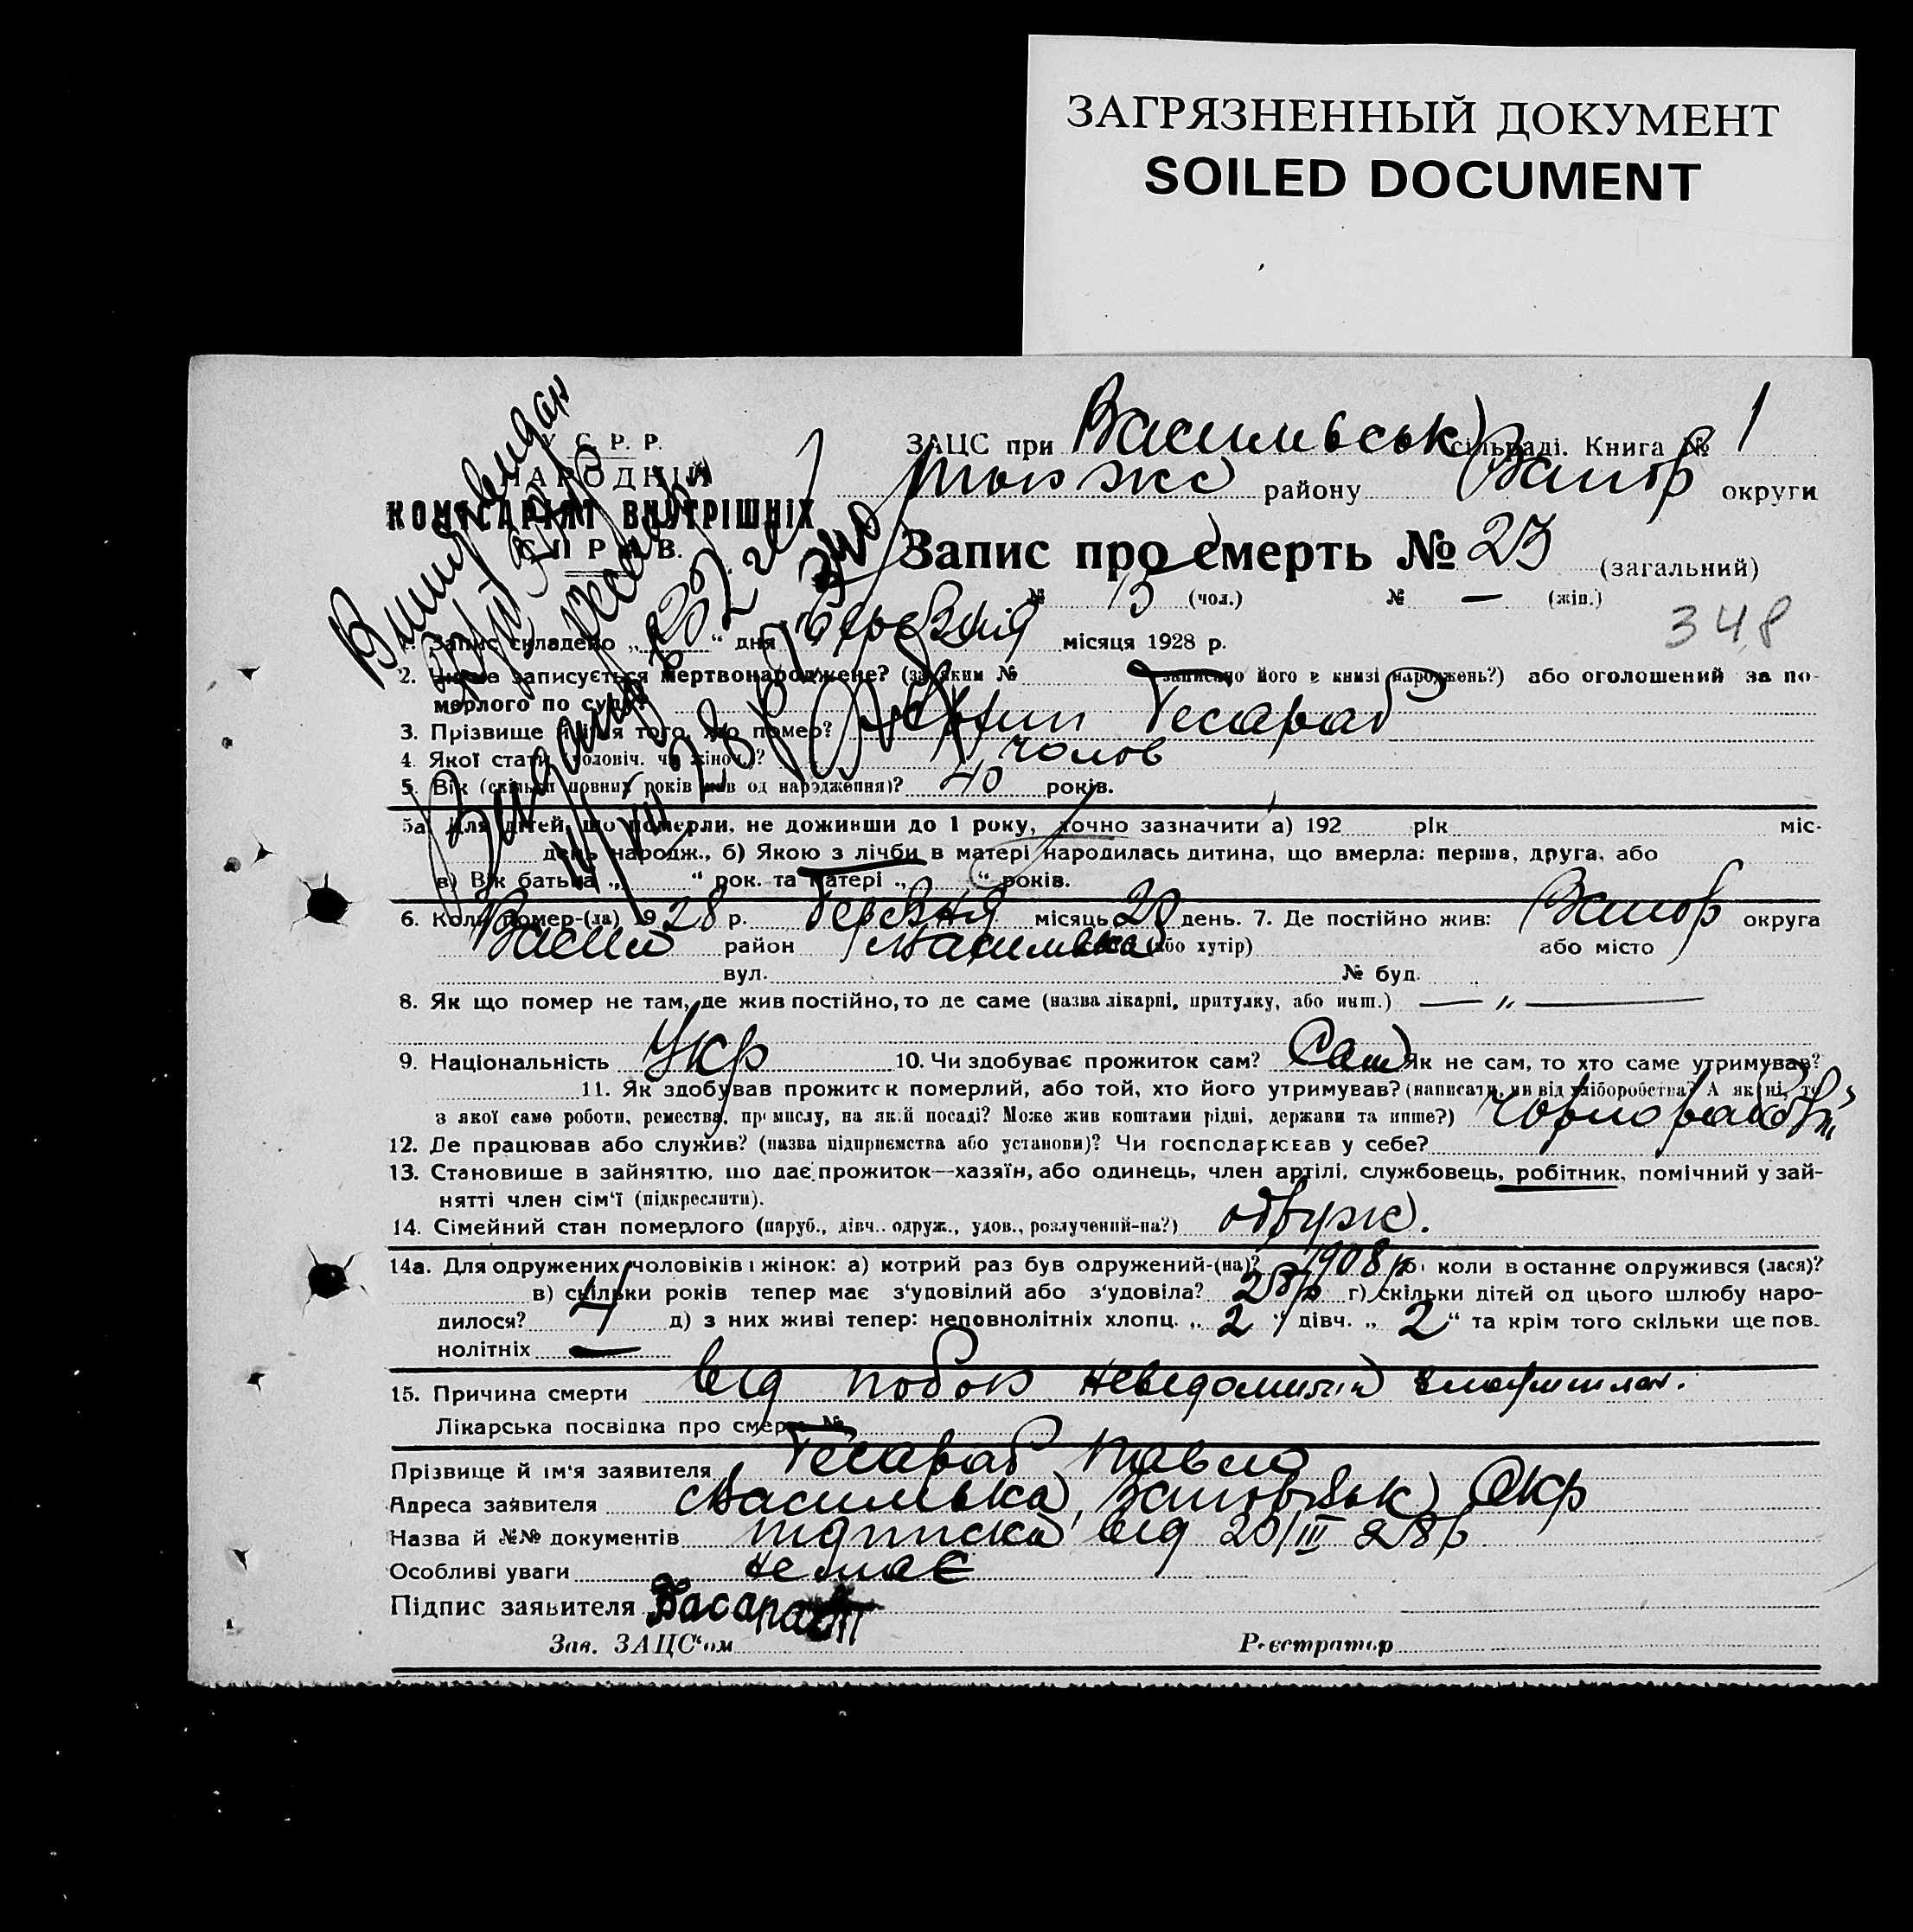 ЗАГРЯЗНЕННЫЙ ДОКУМЕНТ
SOILED DOCUMENT
У. С. Р. Р.
НАРОДНІЙ
КОМІСАРІЯТ ВНУТРІШНІХ
СПРАВ.
ЗАЦС при Васильвськ сільраді. Книга № 1
того же району Запор округи
Запис про смерть № 23 (загальний)
№ 13 (чол.) № — (жін.)
348
1. Запис складено „20“ дня березня місяця 1928 р.
2. Чи не записується мертвонароджене? (за яким № записано його в книзі народжень?) або оголошений за по-
мерлого по суду?
3. Прізвище й ім'я того, хто помер? Бесараб
4. Якої статі (чоловіч. чи жіноч.)? чолов
5. Вік (скільки повних років мав од народження)? 40 років.
5а. Для дітей, що померли, не доживши до 1 року, точно зазначити а) 192 рік міс.
день народж., б) Якою з лічби в матері народилась дитина, що вмерла: перша, друга, або
в) Вік батька „ “ рок. та матері „ “ років.
6. Коли помер-(ла) 1928 р. Березня місяць 20 день. 7. Де постійно жив: Запор округа
Васил район Василівка село (або хутір) або місто
вул. № буд.
8. Як що помер не там, де жив постійно, то де саме (назва лікарні, притулку, або инш.) — „ —
9. Національність Укр 10. Чи здобуває прожиток сам? Сам Як не сам, то хто саме утримував?
11. Як здобував прожиток померлий, або той, хто його утримував? (написати, чи від хліборобства? А як ні, то
з якої саме роботи, ремества, промислу, на якій посаді? Може жив коштами рідні, держави та инше?) чорнорабочій
12. Де працював або служив? (назва підприємства або установи)? Чи господарював у себе?
13. Становище в зайняттю, що дає прожиток—хазяїн, або одинець, член артілі, службовець, робітник, помічний у зай-
нятті член сім'ї (підкреслити).
14. Сімейний стан померлого (паруб., дівч., одруж., удов., розлучений-на?) одруж.
14а. Для одружених чоловіків і жінок: а) котрий раз був одружений-(на)? 1908 р б) коли востаннє одружився (лася)?
в) скільки років тепер має з'удовілий або з'удовіла? г) скільки дітей од цього шлюбу наро-
дилося? 4 д) з них живі тепер: неповнолітніх хлопц. „ 2 “ дівч. „ 2 “ та крім того скільки ще пов-
нолітніх —
15. Причина смерти від побоїв невідомими
Лікарська посвідка про смерть №
Прізвище й ім'я заявителя Бесараб Павло
Адреса заявителя Василівка, Запорізьк Окр
Назва й №№ документів підписка від 20/III 28 р
Особливі уваги немає
Підпис заявителя Басараб
Зав. ЗАЦС'ом Реєстратор